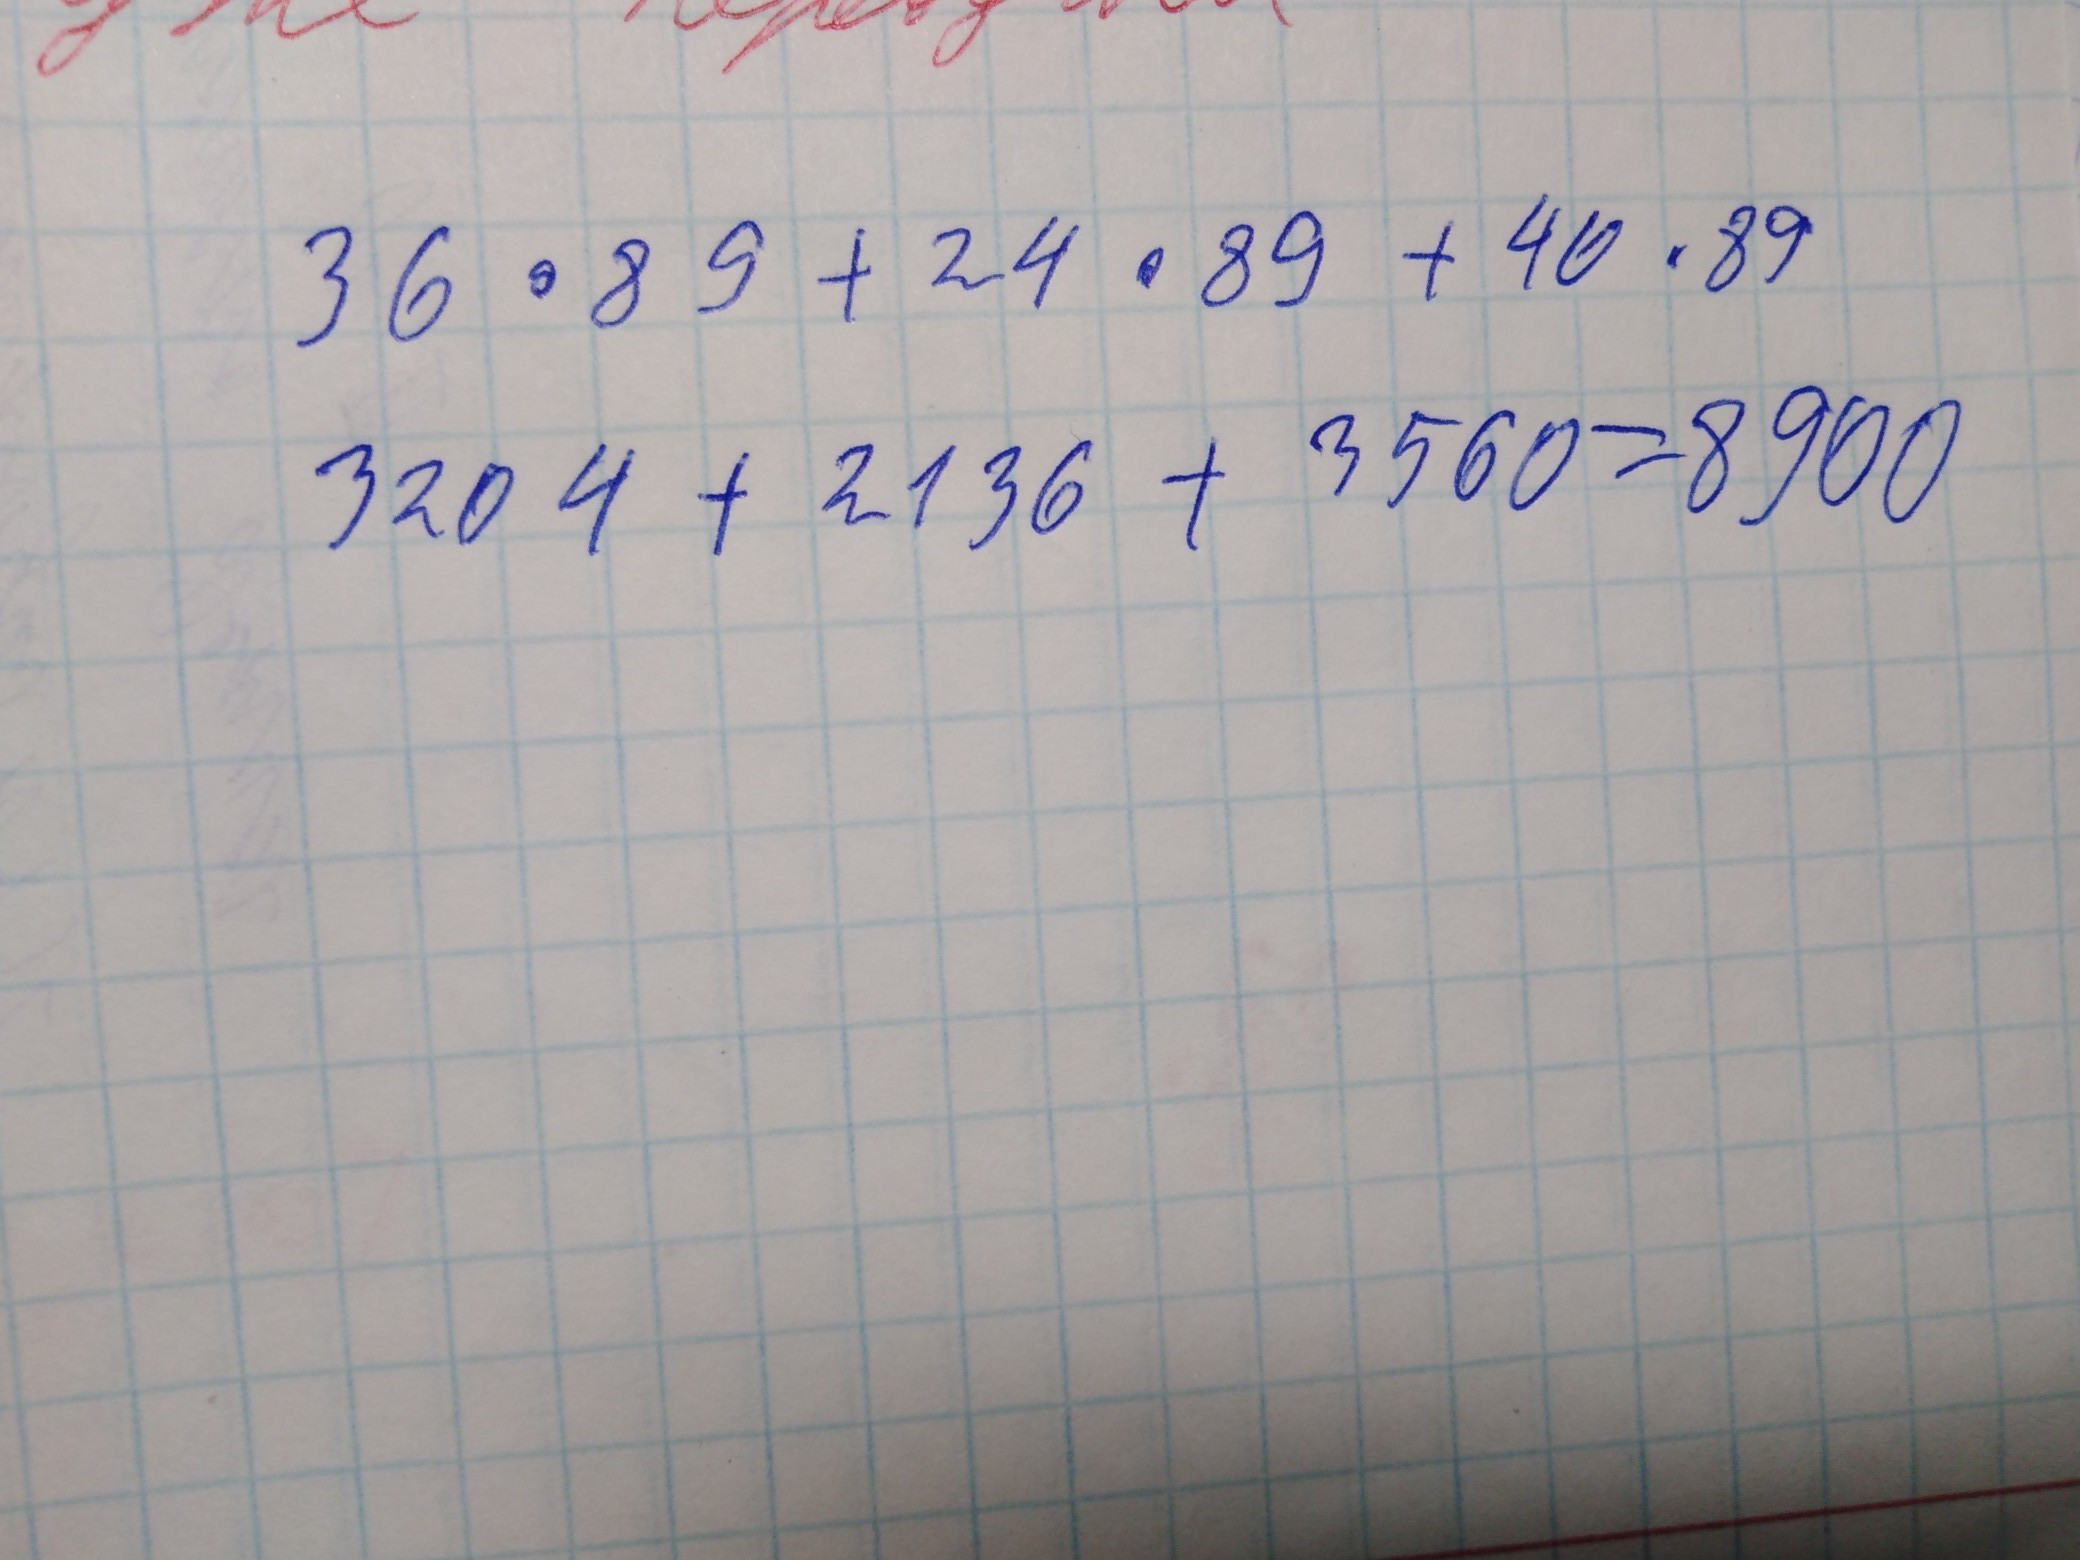 36 · 89 + 24 · 89 + 40 · 89
3204 + 2136 + 3560 = 8900